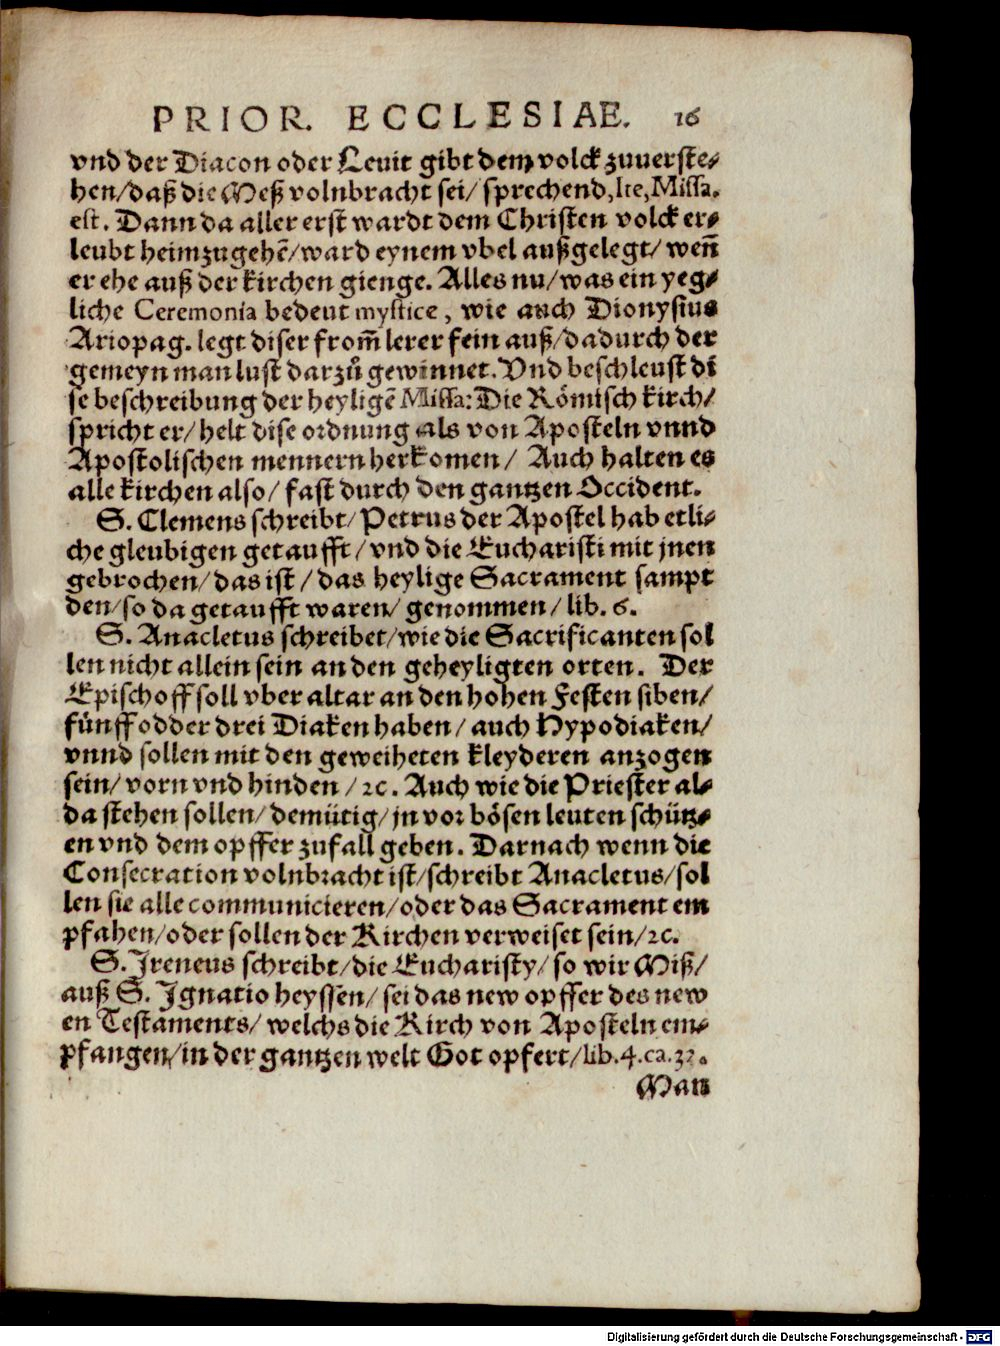 PRIOR. ECCLESIAE. 16
vnd der Diacon oder Leuit gibt dem volck zuuerste⸗
hen/daß die Meß volnbracht sei/ sprechend, Ite, Missa.
est. Dann da aller erst wardt dem Christen volck er⸗
leubt heimzugehē/ward eynem vbel außgelegt/ weñ
er ehe auß der kirchen gienge. Alles nu/was ein yeg⸗
liche Ceremonia bedeut mystice, wie auch Dionysius
Ariopag. legt diser from̃ lerer fein auß/dadurch der
gemeyn man lust darzů gewinnet. Vnd beschleust di
se beschreibung der heyligē Missa: Die Römisch kirch/
spricht er/ helt dise ordnung als von Aposteln vnnd
Apostolischen mennern herkomen/ Auch halten es
alle kirchen also/ fast durch den gantzen Occident.
S. Clemens schreibt/ Petrus der Apostel hab etli⸗
che gleubigen getaufft/vnd die Eucharisti mit jnen
gebrochen/das ist/das heylige Sacrament sampt
den/so da getaufft waren/ genommen/ lib. 6.
S. Anacletus schreibet/wie die Sacrificanten sol
len nicht allein sein an den geheyligten orten. Der
Epischoff soll vber altar an den hohen Festen siben/
fünff odder drei Diaken haben/ auch Hypodiaken/
vnnd sollen mit den geweiheten kleyderen anzogen
sein/ vorn vnd hinden/ ⁊c. Auch wie die Priester al⸗
da stehen sollen/demütig/jn vor bösen leuten schütz⸗
en vnd dem opffer zufall geben. Darnach wenn die
Consecration volnbracht ist/schreibt Anacletus/sol
len sie alle communicieren/oder das Sacrament em
pfahen/oder sollen der Kirchen verweiset sein/⁊c.
S. Ireneus schreibt/die Eucharisty/ so wir Miß/
auß S. Ignatio heyssen/ sei das new opffer des new
en Testaments/ welchs die Kirch von Aposteln em⸗
pfangen/in der gantzen welt Got opfert/lib. 4. ca. 32.
Man
Digitalisierung gefördert durch die Deutsche Forschungsgemeinschaft - DFG